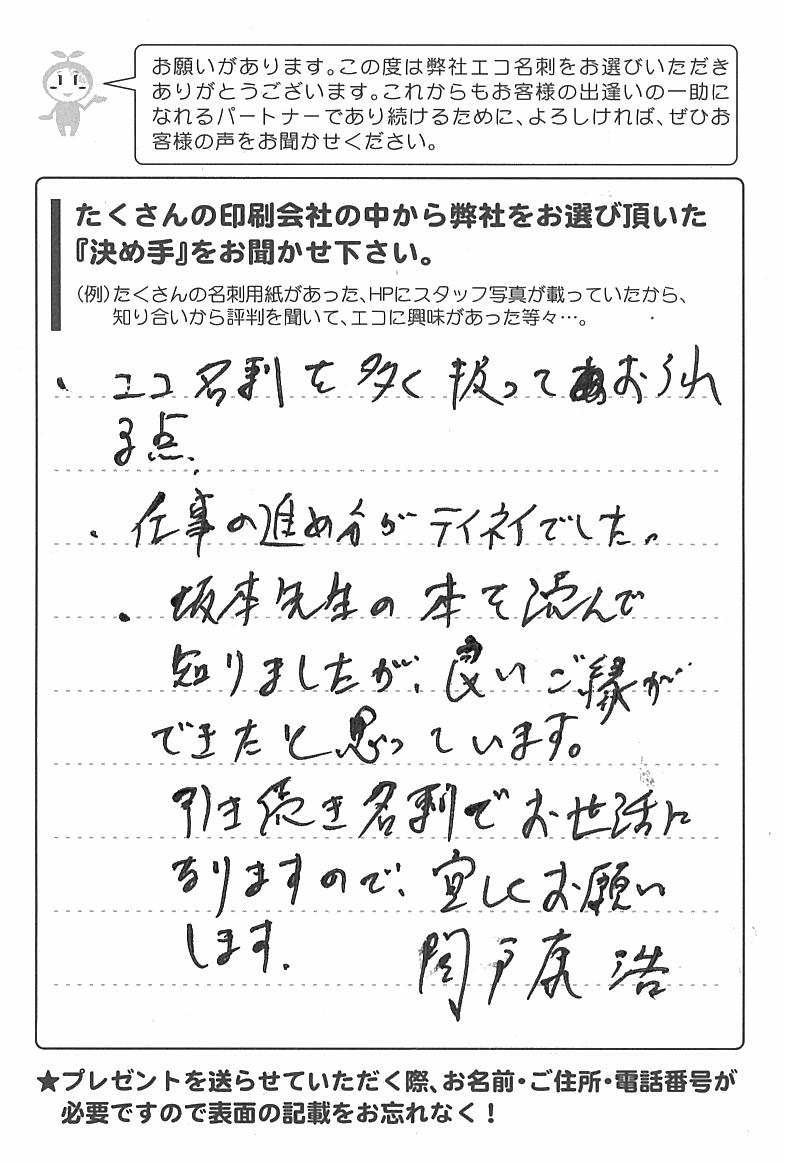 お願いがあります。この度は弊社エコ名刺をお選びいただき
ありがとうございます。これからもお客様の出逢いの一助に
なれるパートナーであり続けるために、よろしければ、ぜひお
客様の声をお聞かせください。
たくさんの印刷会社の中から弊社をお選び頂いた
『決め手』をお聞かせ下さい。
(例)たくさんの名刺用紙があった、HPにスタッフ写真が載っていたから、
知り合いから評判を聞いて、エコに興味があった等々…。
・エコ名刺を多く扱っておられ
る点.
・仕事の進め分がテイネイでした。
・坂本先生の本を読んで
知りましたが、良いご縁が
できたと思っています。
引き続き名刺でお世話に
なりますので、宜しくお願い
します.
関戸康浩
★プレゼントを送らせていただく際、お名前・ご住所・電話番号が
必要ですので表面の記載をお忘れなく！